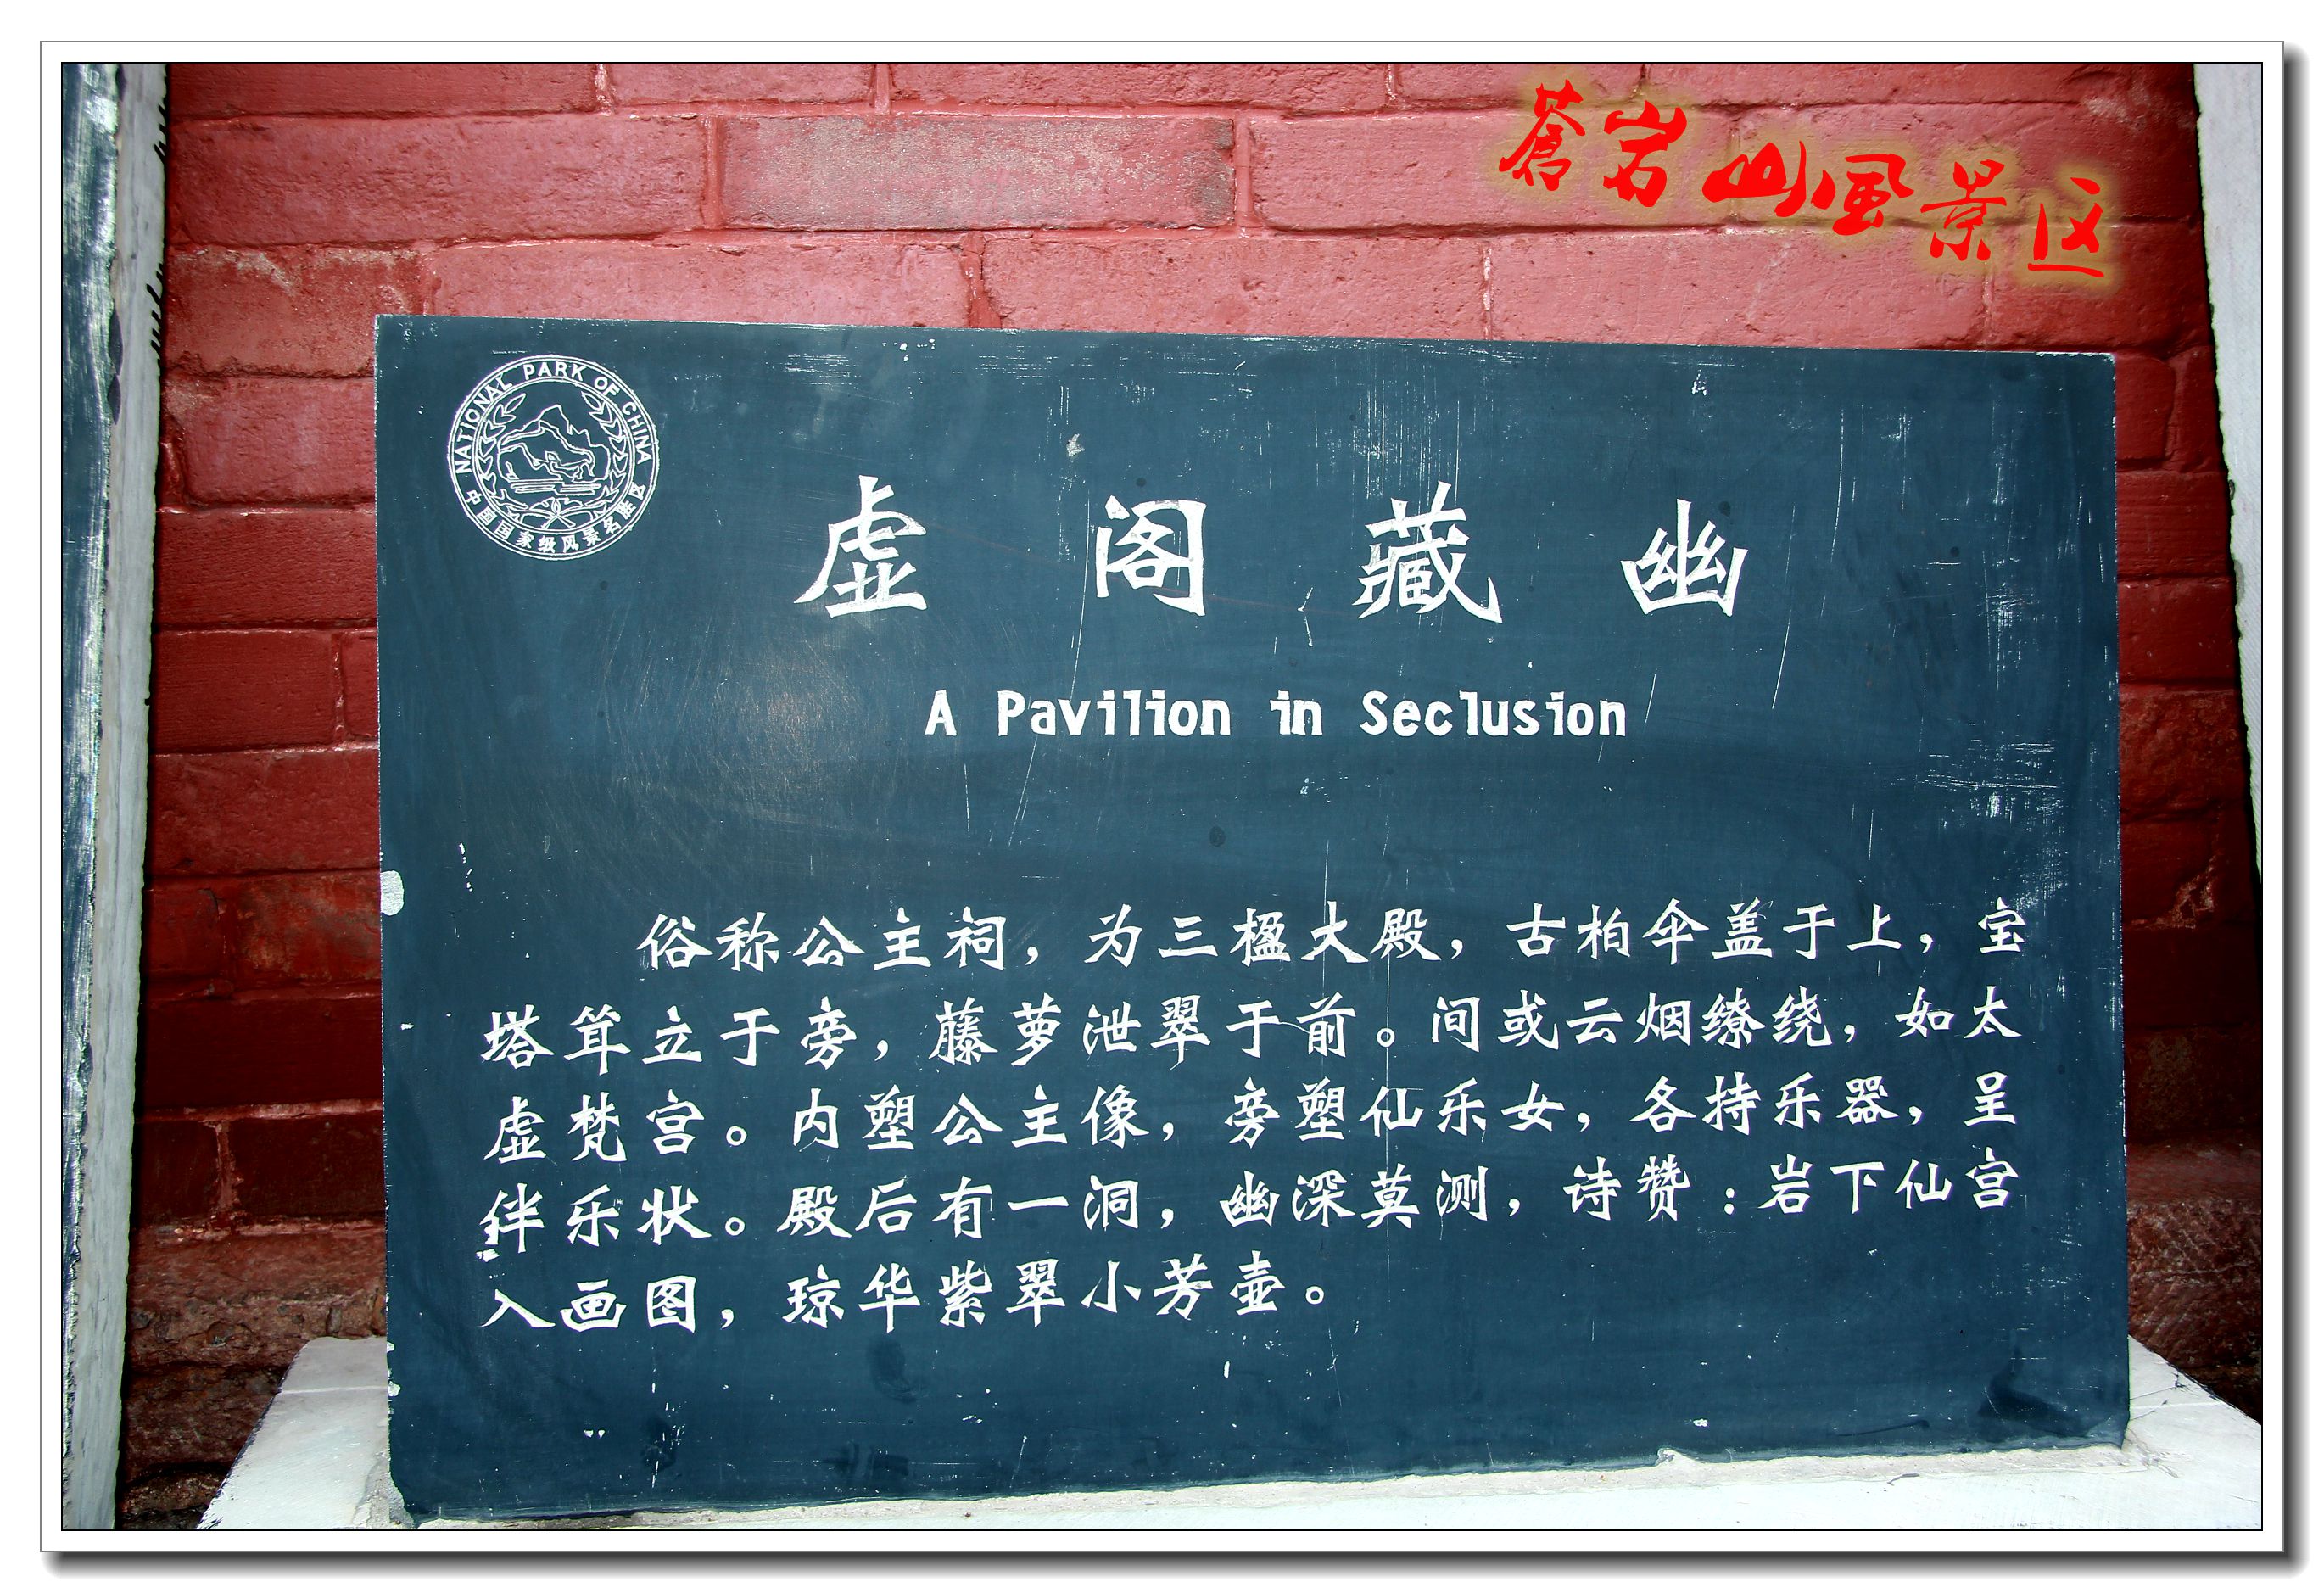 蒼岩山風景区
NATIONAL PARK OF CHINA
中国国家级风景名胜区
虚阁藏幽
A Pavilion in Seclusion
俗称公主祠，为三楹大殿，古柏伞盖于上，宝
塔耸立于旁，藤萝泄翠于前。间或云烟缭绕，如太
虚梵宫。内塑公主像，旁塑仙乐女，各持乐器，呈
伴乐状。殿后有一洞，幽深莫测，诗赞：岩下仙宫
入画图，琼华紫翠小芳壶。